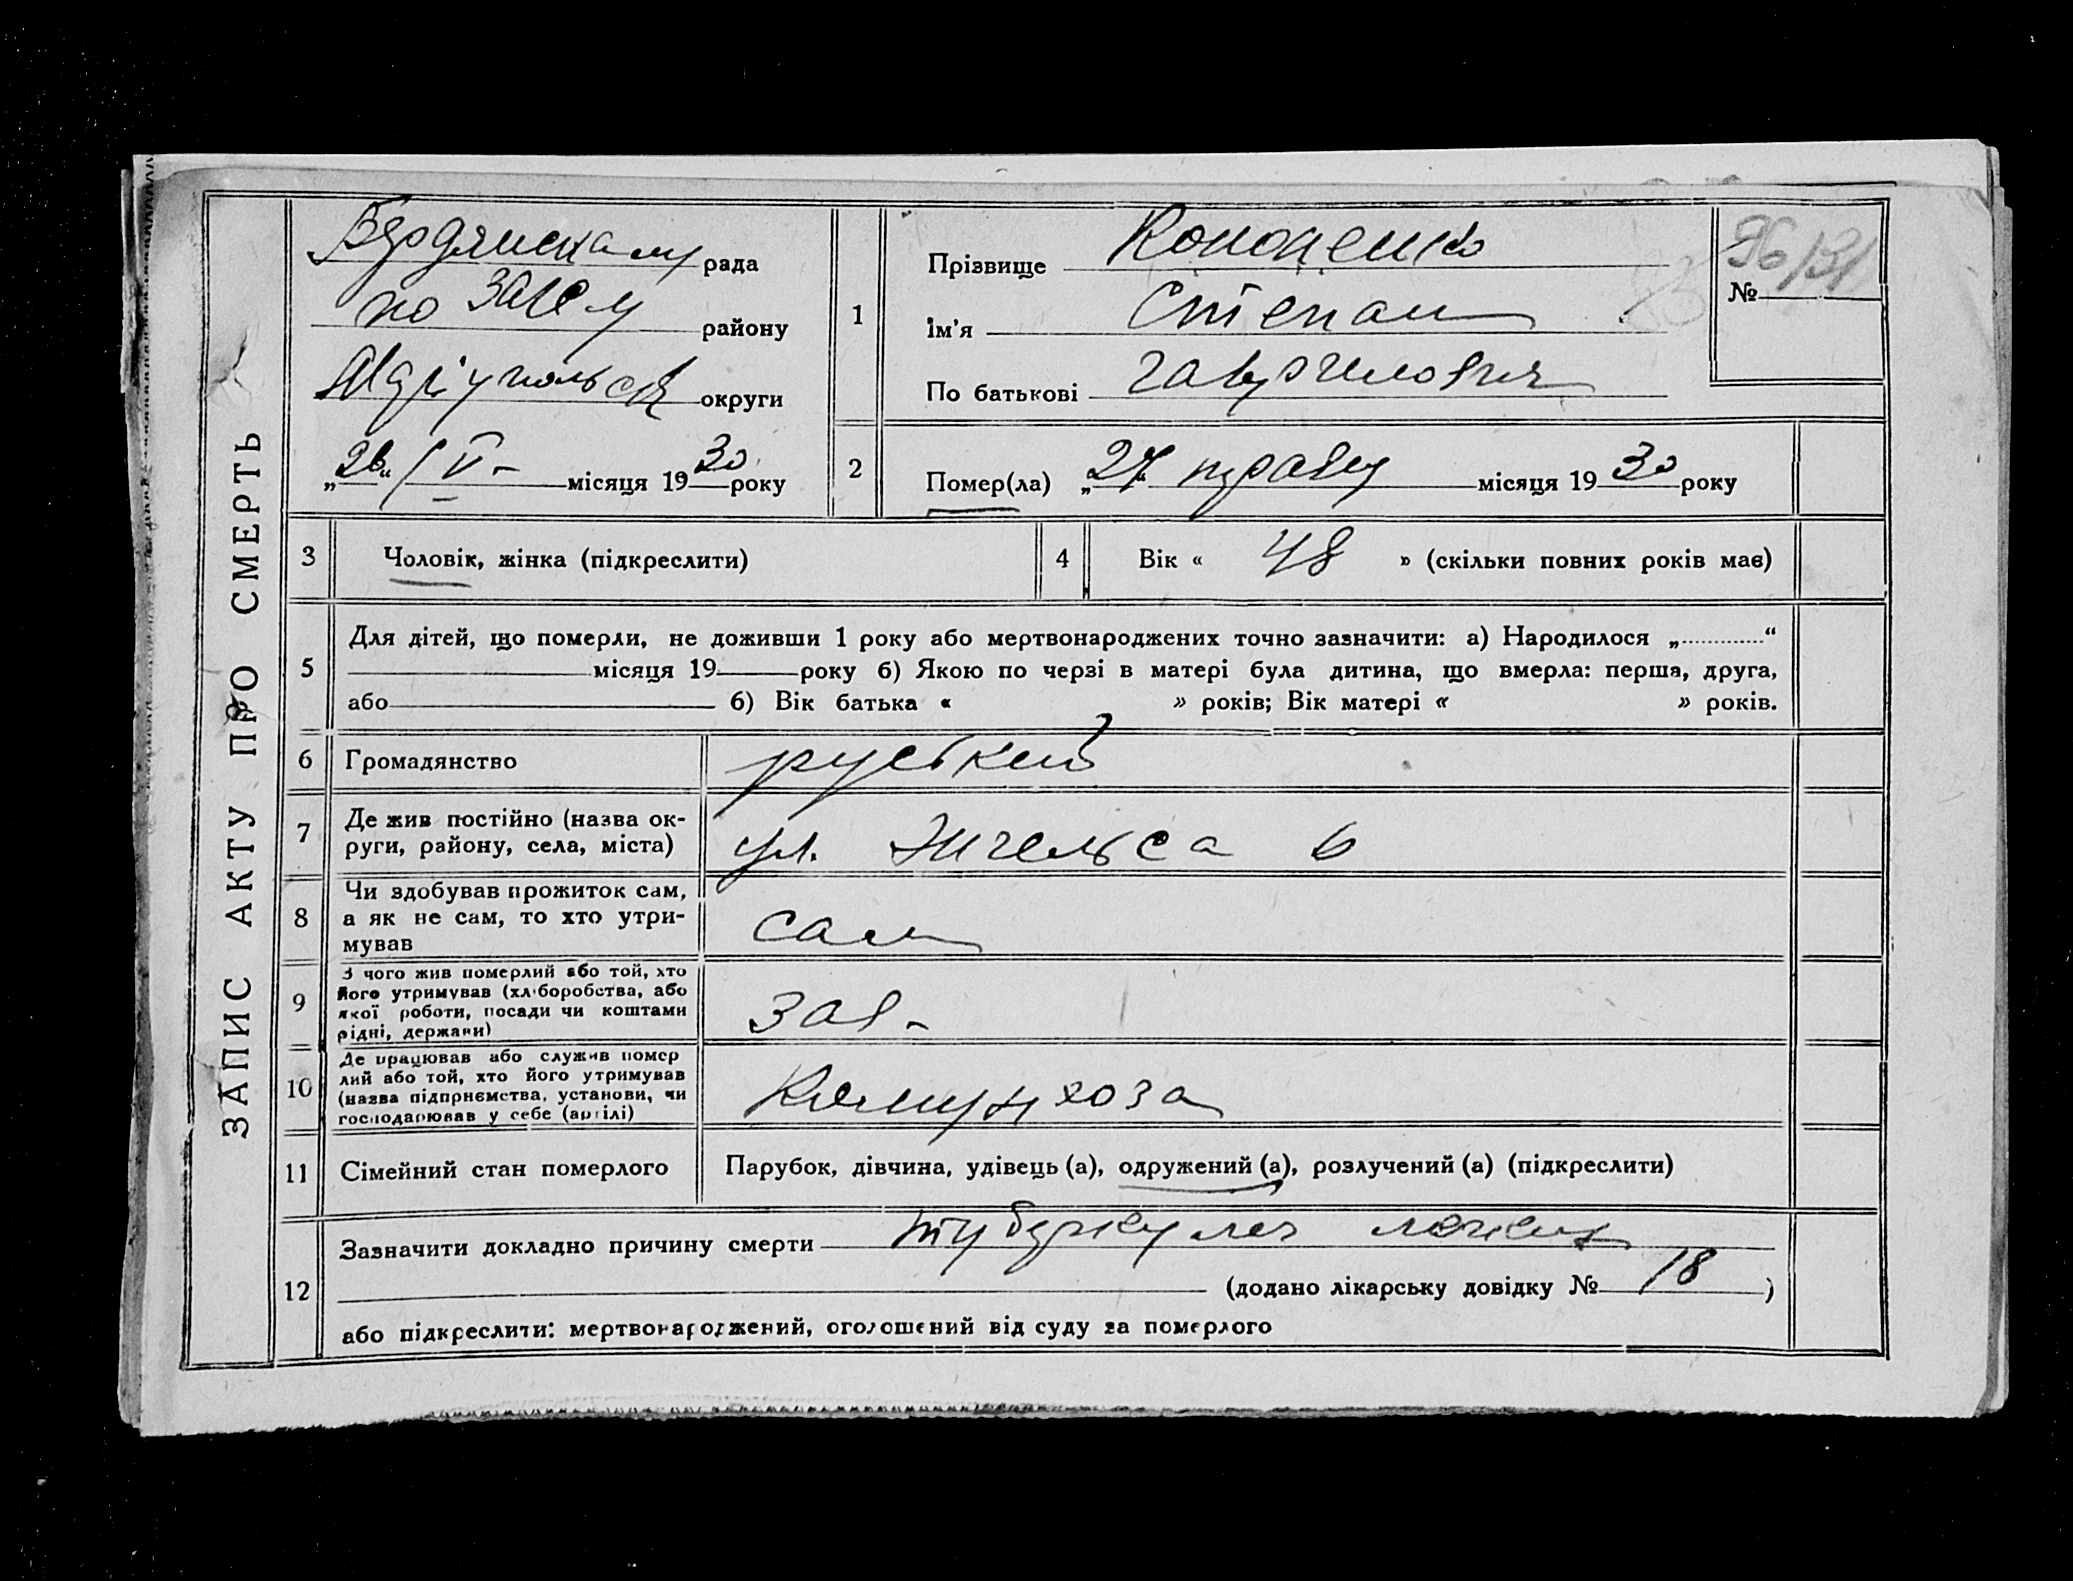 ЗАПИС АКТУ ПРО СМЕРТЬ
рада
району
Маріупольськ округи
„26“ IV- місяця 1930 року
1
Прізвище Кононенко
Ім'я Степан
По батькові Гаврилович
№ 96/31
2
Помер(ла) „27“ травн місяця 1930 року
3
Чоловік, жінка (підкреслити)
4
Вік « 48 » (скільки повних років має)
5
Для дітей, що померли, не доживши 1 року або мертвонароджених точно зазначити: а) Народилося „ “
місяця 19 року б) Якою по черзі в матері була дитина, що вмерла: перша, друга,
або б) Вік батька « » років; Вік матері « » років.
6
Громадянство
руський
7
Де жив постійно (назва ок-
руги, району, села, міста)
ул. Энгельса 6
8
Чи здобував прожиток сам,
а як не сам, то хто утри-
мував
сам
9
З чого жив померлий або той, хто
його утримував (хліборобства, або
якої роботи, посади чи коштами
рідні, держави)
Зав-
10
Де працював або служив помер
лий або той, хто його утримував
(назва підприємства, установи, чи
господарював у себе (артілі)
Комунхоза
11
Сімейний стан померлого
Парубок, дівчина, удівець (а), одружений (а), розлучений (а) (підкреслити)
12
Зазначити докладно причину смерти туберкулез легких
(додано лікарську довідку № 18 )
або підкреслити: мертвонароджений, оголошений від суду за померлого